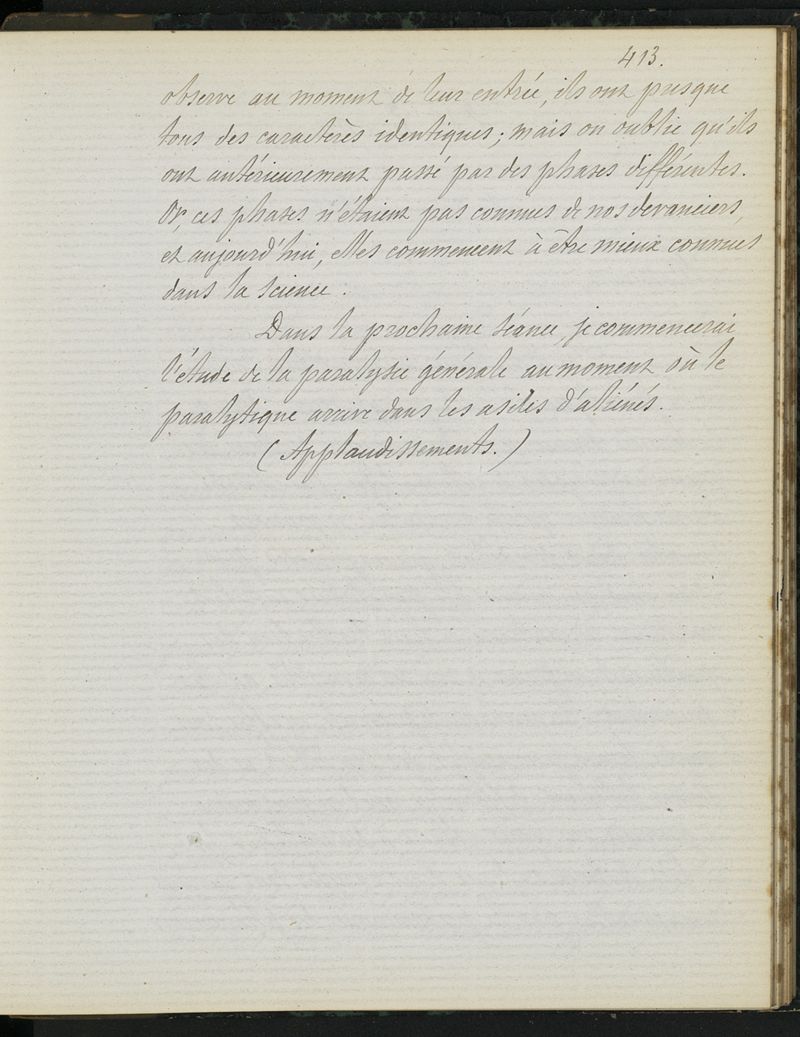 413.
observe au moment de leur entrée, ils ont presque
tous des caractères identiques; mais on oublie qu'ils
ont antérieurement passé par des phases différentes.
Or, ces phases n'étaient pas connues de nos devanciers,
et aujourd'hui, elles commencent à être mieux connues
dans la science.
Dans la prochaine séance, je commencerai
l'étude de la paralysie générale au moment où le
paralytique arrive dans les asiles d'aliénés.
(Applaudissements.)